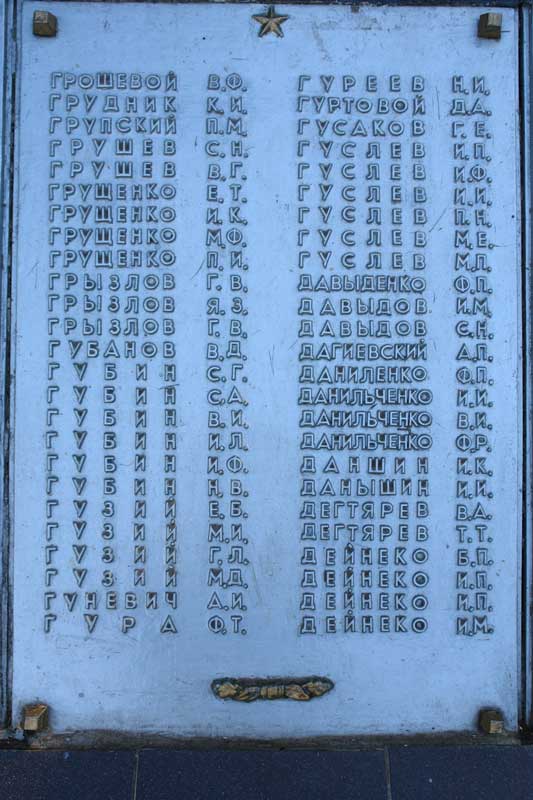 ГРОШЕВОЙ В.Ф.
ГРУДНИК К.И.
ГРУПСКИЙ П.М.
ГРУШЕВ С.Н.
ГРУШЕВ В.Г.
ГРУЩЕНКО Е.Т.
ГРУЩЕНКО И.К.
ГРУЩЕНКО М.Ф.
ГРУЩЕНКО П.И.
ГРЫЗЛОВ Г.В.
ГРЫЗЛОВ Я.З.
ГРЫЗЛОВ Г.В.
ГУБАНОВ В.Д.
ГУБИН С.Г.
ГУБИН С.А.
ГУБИН В.И.
ГУБИН И.Л.
ГУБИН И.Ф.
ГУБИН Н.В.
ГУЗИЙ Е.Б.
ГУЗИЙ М.И.
ГУЗИЙ Г.Л.
ГУЗИЙ М.Д.
ГУНЕВИЧ А.И.
ГУРА Ф.Т.
ГУРЕЕВ Н.И.
ГУРТОВОЙ Д.А.
ГУСАКОВ Г.Е.
ГУСЛЕВ И.П.
ГУСЛЕВ И.Ф.
ГУСЛЕВ И.И.
ГУСЛЕВ П.Н.
ГУСЛЕВ М.Е.
ГУСЛЕВ М.П.
ДАВЫДЕНКО Ф.П.
ДАВЫДОВ И.М.
ДАВЫДОВ С.Н.
ДАГИЕВСКИЙ А.П.
ДАНИЛЕНКО Ф.П.
ДАНИЛЬЧЕНКО И.И.
ДАНИЛЬЧЕНКО В.И.
ДАНИЛЬЧЕНКО Ф.Р.
ДАНШИН И.К.
ДАНЫШИН И.И.
ДЕГТЯРЕВ В.А.
ДЕГТЯРЕВ Т.Т.
ДЕЙНЕКО Б.П.
ДЕЙНЕКО И.П.
ДЕЙНЕКО И.П.
ДЕЙНЕКО И.М.